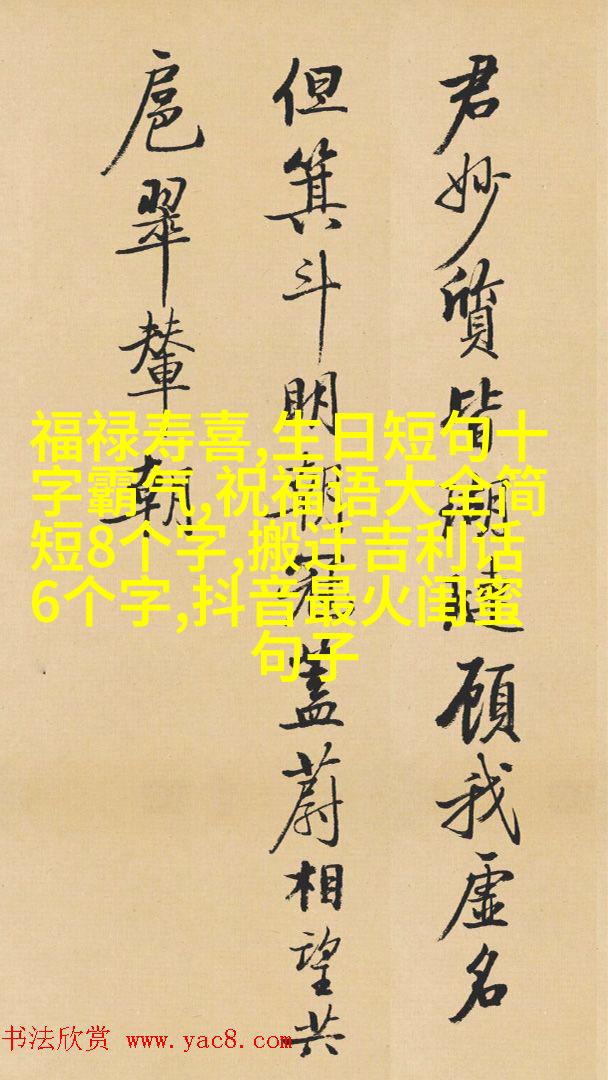 君妙質皆瑚璉顾我虚名
但箕斗明朝冠蓋蔚相望共
扈翠輦朝
福禄寿喜,生日短句十
字霸气,祝福语大全简
短8个字,搬迁吉利话
6个字,抖音最火闺蜜
句子
书法欣赏 www.yac8.com